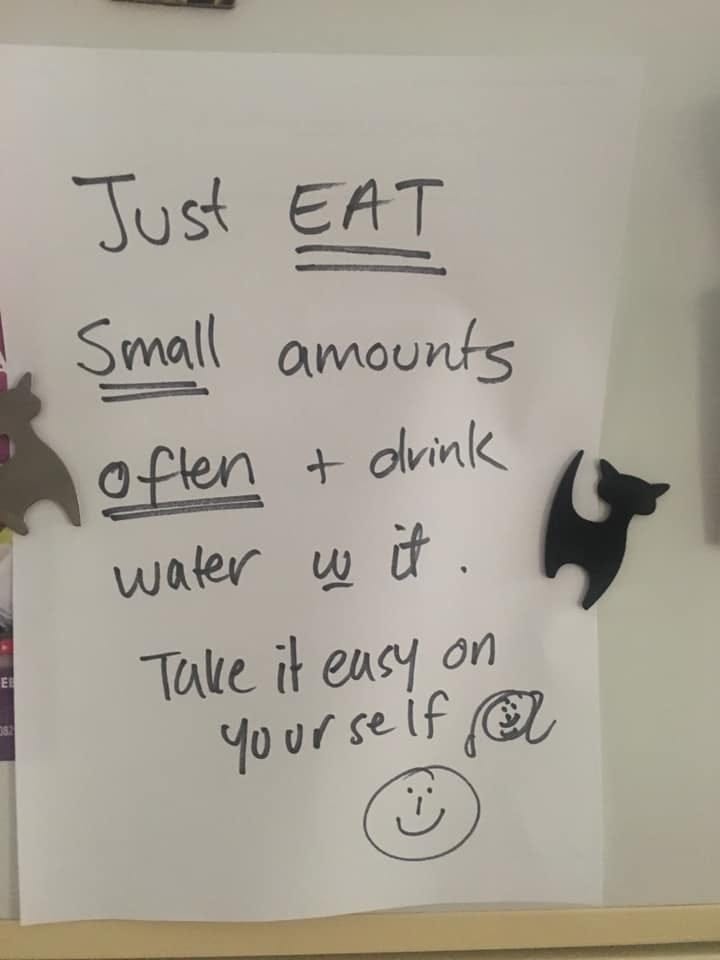 Just EAT
Small amounts
often + drink
water w it.
Take it easy on
yourself